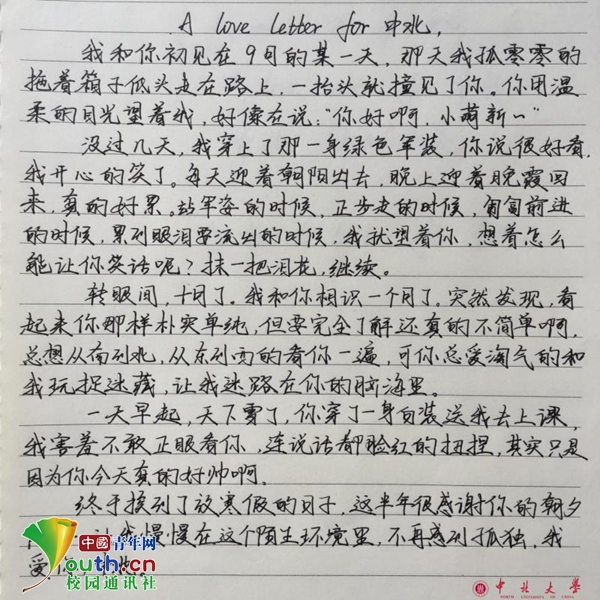 A love letter for 中北,
我和你初见在9月的某一天，那天我孤零零的
拖着箱子低头走在路上，一抬头就撞见了你。你用温
柔的目光望着我，好像在说："你好啊，小萌新~"
没过几天，我穿上了那一身绿色军装，你说很好看，
我开心的笑了。每天迎着朝阳出去，晚上迎着晚霞回
来，真的好累。站军姿的时候，正步走的时候，匍匐前进
的时候，累到眼泪要流出的时候，我就望着你，想着怎么
能让你笑话呢？抹一把泪花，继续。
转眼间，十月了。我和你相识一个月了。突然发现，看
起来你那样朴实单纯，但要完全了解还真的不简单啊，
总想从南到北，从东到西的看你一遍，可你总爱淘气的和
我玩捉迷藏，让我迷路在你的脑海里。
一天早起，天下雪了，你穿了一身白装送我去上课，
我害羞不敢正眼看你，连说话都脸红的扭捏，其实只是
因为你今天真的好帅啊。
终于挨到了放寒假的日子，这半年很感谢你的朝夕
让我慢慢在这个陌生环境里，不再感到孤独，我
爱你，中北。
中国青年网
Youth.cn
校园通讯社
中北大学
NORTH UNIVERSITY OF CHINA